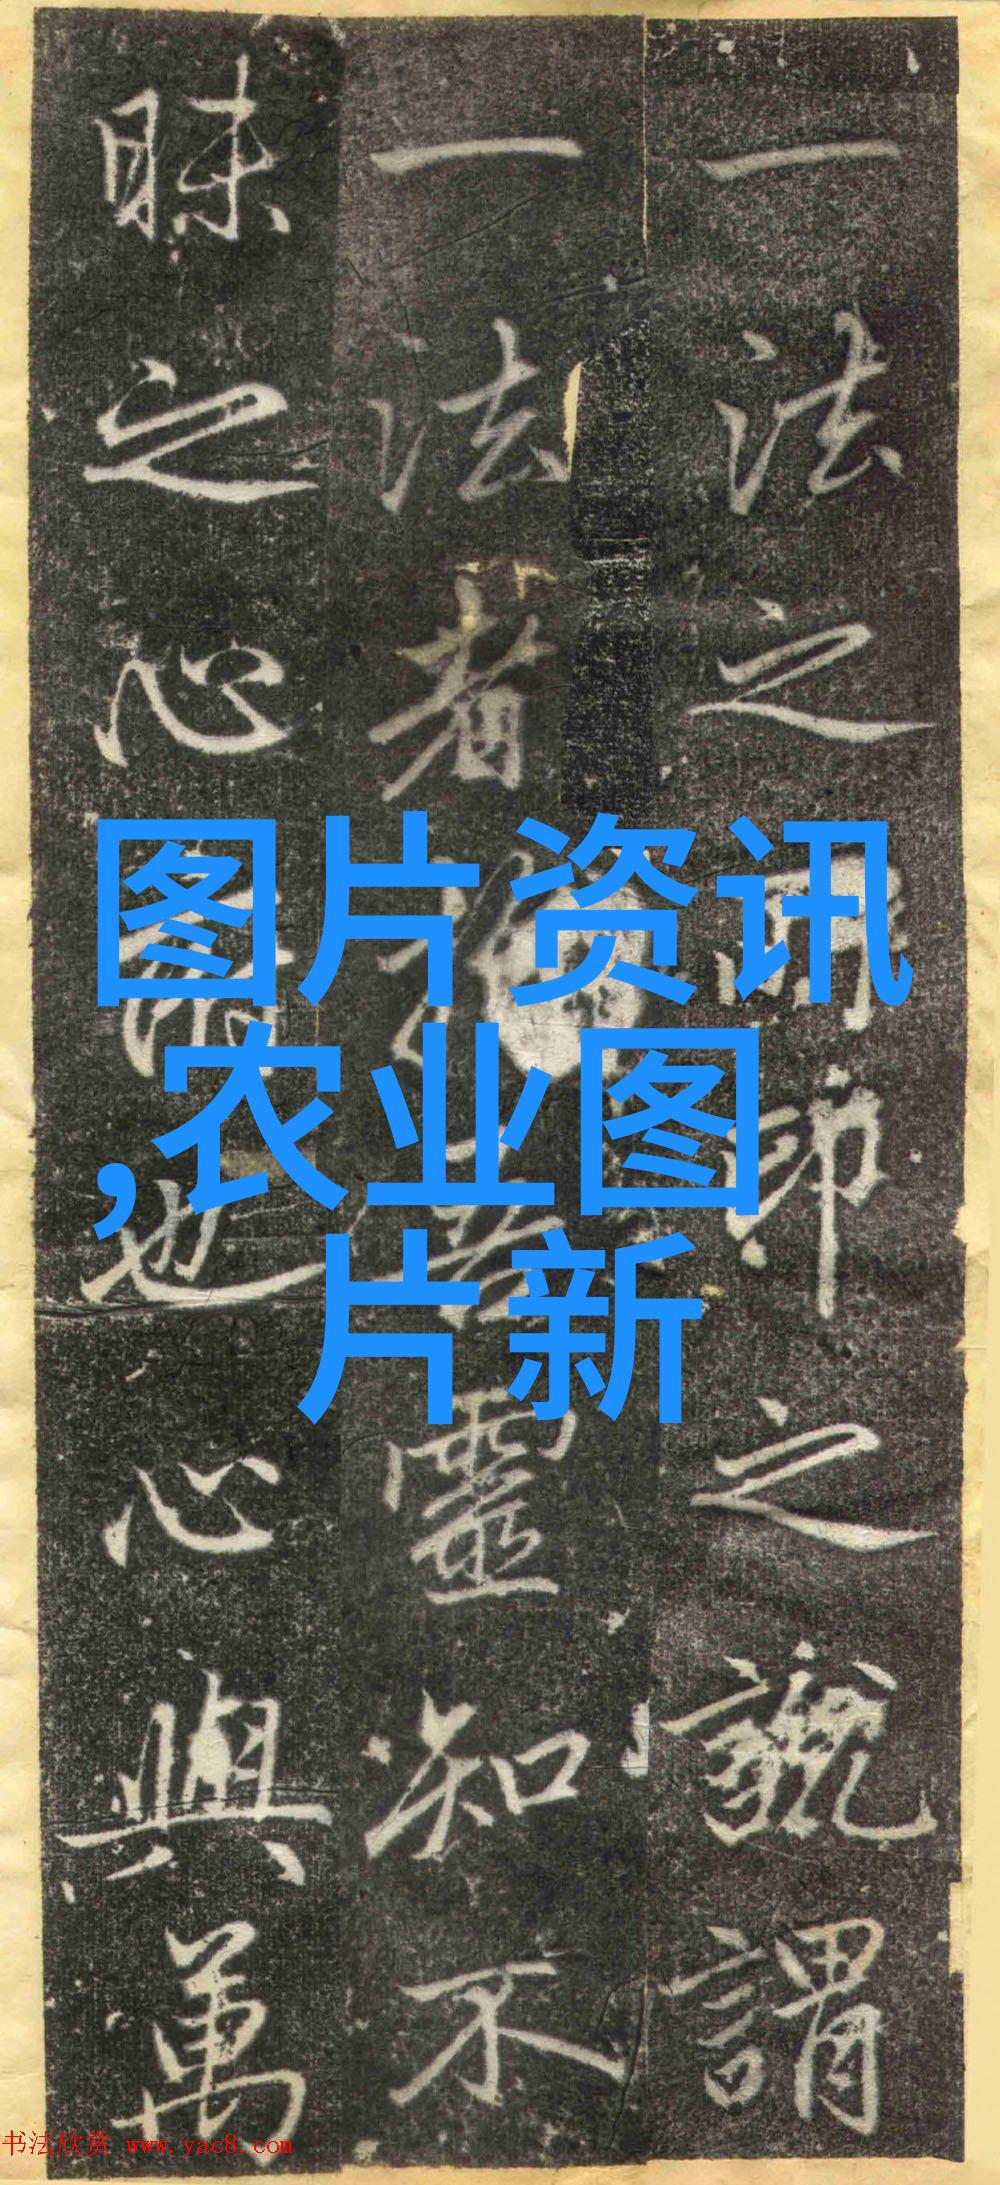 一法之印之謂
一法者靈知不
昧之心也心與萬
图片资讯
,农业图
片新
书法欣赏 www.yac8.com